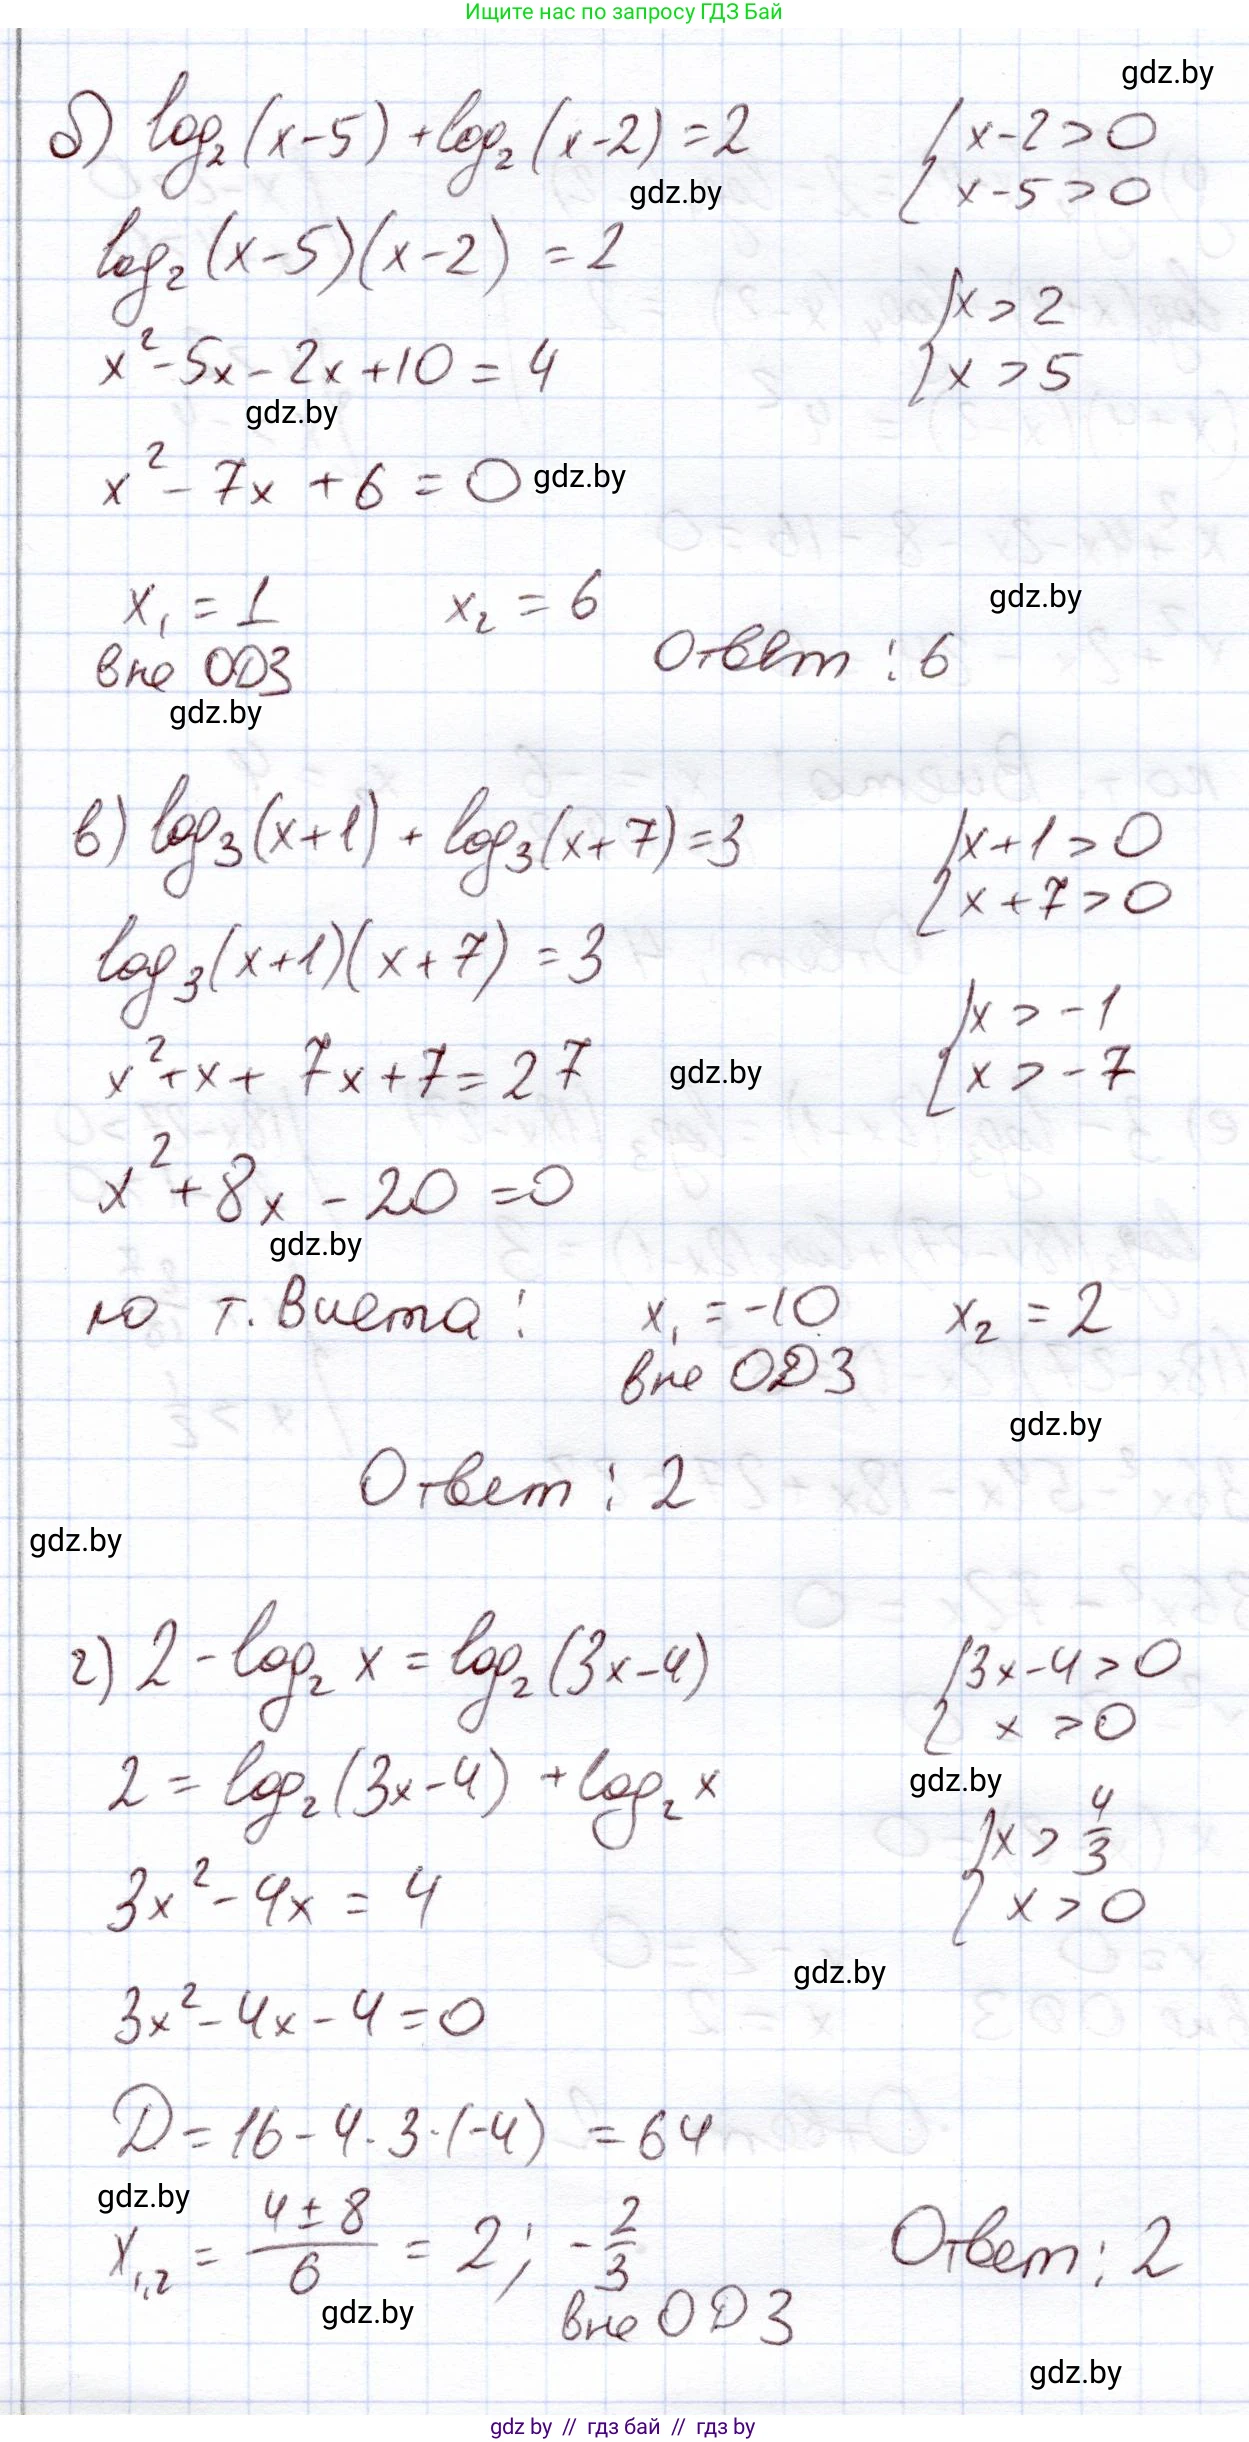 Ищите нас по запросу ГДЗ Бай
gdz.by
б) log₂(x-5) + log₂(x-2) = 2
{ x-2 > 0
{ x-5 > 0
gdz.by
log₂(x-5)(x-2) = 2
{ x > 2
{ x > 5
x² - 5x - 2x + 10 = 4
gdz.by
x² - 7x + 6 = 0
gdz.by
x₁ = 1 x₂ = 6
gdz.by
вне ОДЗ
Ответ: 6
gdz.by
в) log₃(x+1) + log₃(x+7) = 3
{ x+1 > 0
{ x+7 > 0
log₃(x+1)(x+7) = 3
{ x > -1
{ x > -7
x² + x + 7x + 7 = 27
gdz.by
x² + 8x - 20 = 0
gdz.by
по т. Виета: x₁ = -10 x₂ = 2
вне ОДЗ
gdz.by
Ответ: 2
gdz.by
г) 2 - log₂ x = log₂(3x-4)
{ 3x-4 > 0
{ x > 0
2 = log₂(3x-4) + log₂ x
gdz.by
{ x > 4/3
{ x > 0
3x² - 4x = 4
gdz.by
3x² - 4x - 4 = 0
D = 16 - 4·3·(-4) = 64
gdz.by
x₁,₂ = (4 ± 8)/6 = 2; -2/3
Ответ: 2
gdz.by
вне ОДЗ
gdz.by
gdz by // гдз бай // гдз by